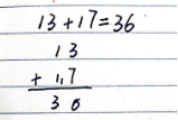 13+17=36
13
+ 1₁7
36